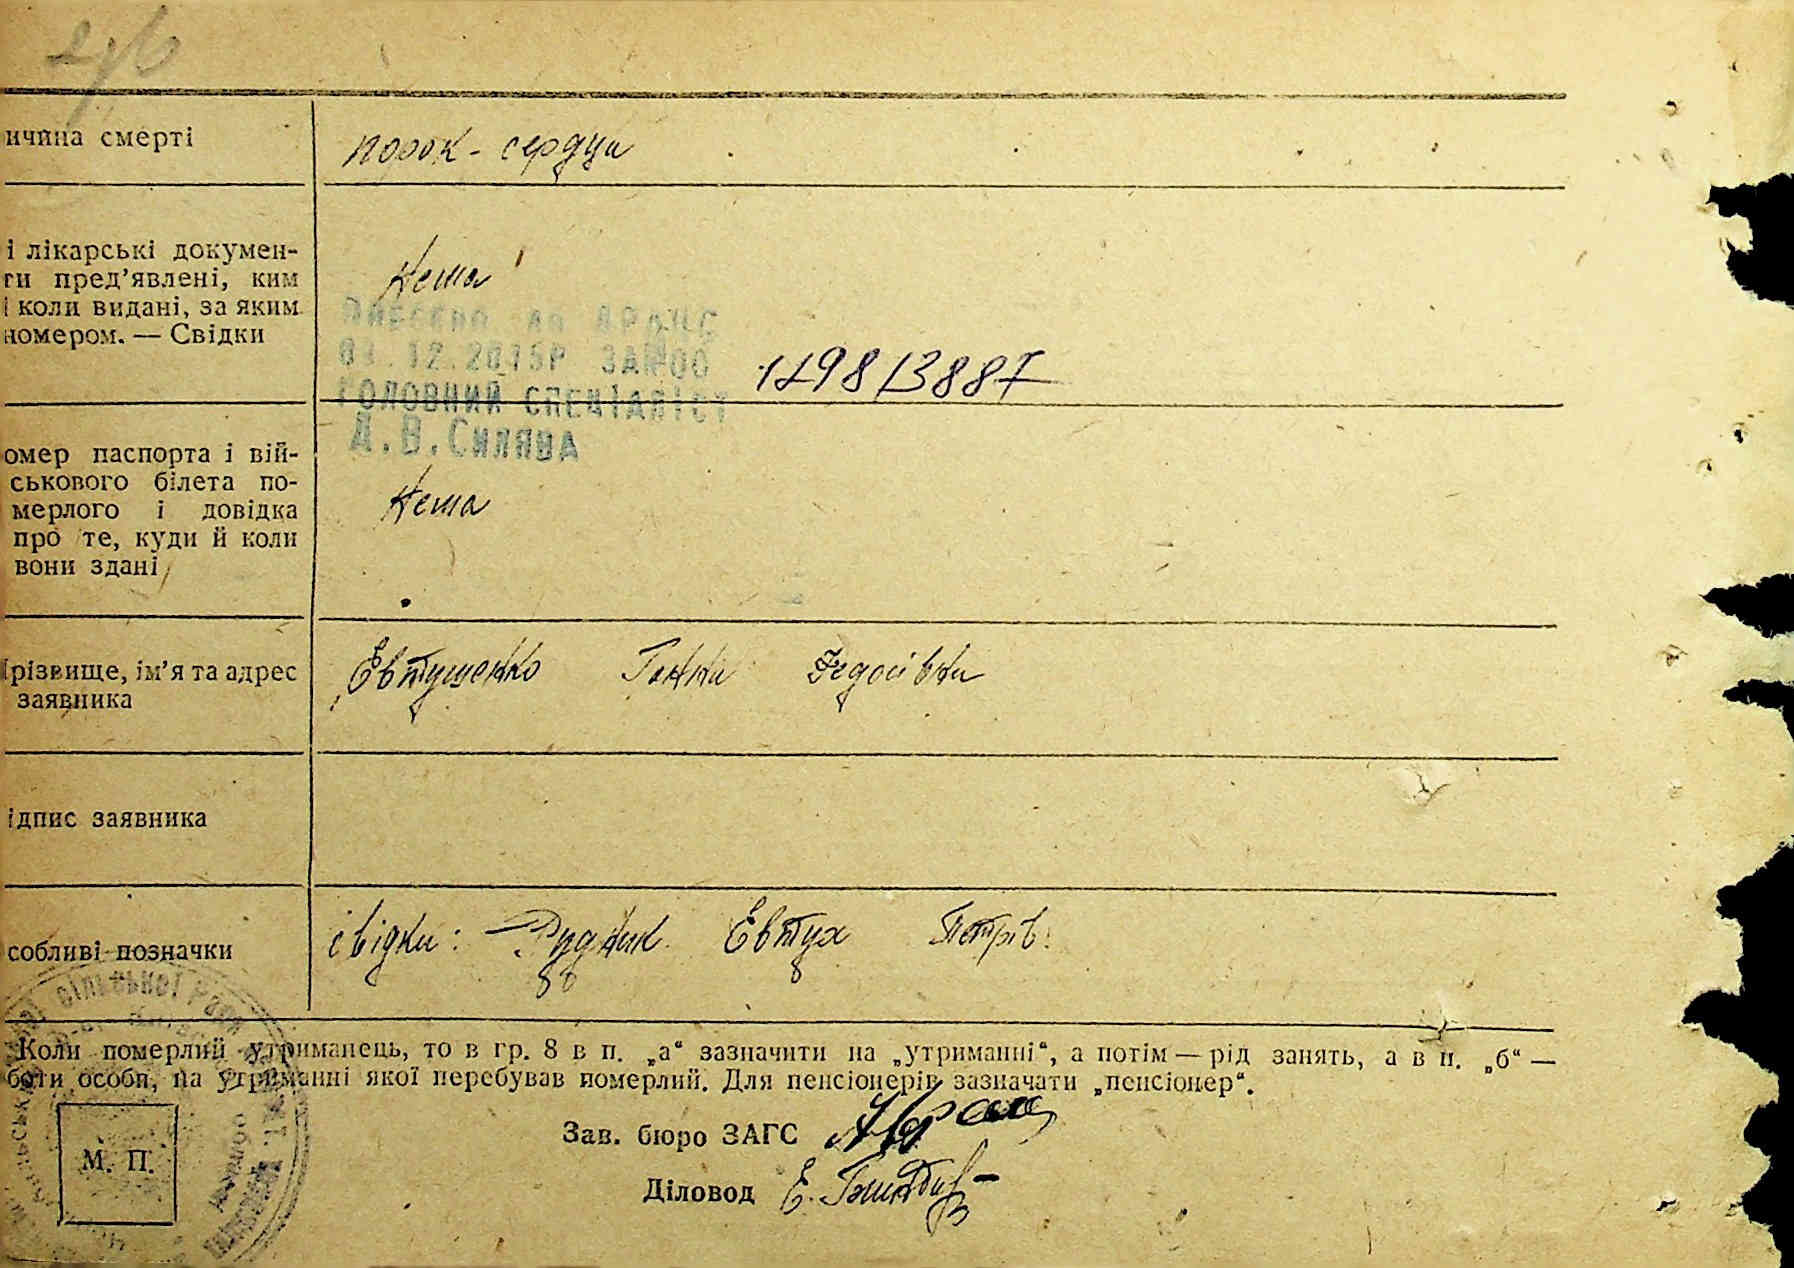 ичина смерті
порок - сердца
і лікарські докумен-
ти пред’явлені, ким
і коли видані, за яким
номером. — Свідки
Нема
12.2015Р
ГОЛОВНИЙ СПЕЦІАЛІСТ
Д.В.СИЛЯВА
1298/3887
омер паспорта і вій-
ськового білета по-
мерлого і довідка
про те, куди й коли
вони здані
Нема
різвище, ім’я та адрес
заявника
Євтушенко Ганна Федосівна
ідпис заявника
собливі позначки
свідки: Рудник Євтух Петрів.
СІЛЬСЬКОЇ РАДИ
Коли померлий утриманець, то в гр. 8 в п. „а“ зазначити на „утриманні“, а потім — рід занять, а в п. „б“ —
боти особи, на утриманні якої перебував померлий. Для пенсіонерів зазначати „пенсіонер“.
Зав. бюро ЗАГС
М. П.
Діловод Є.